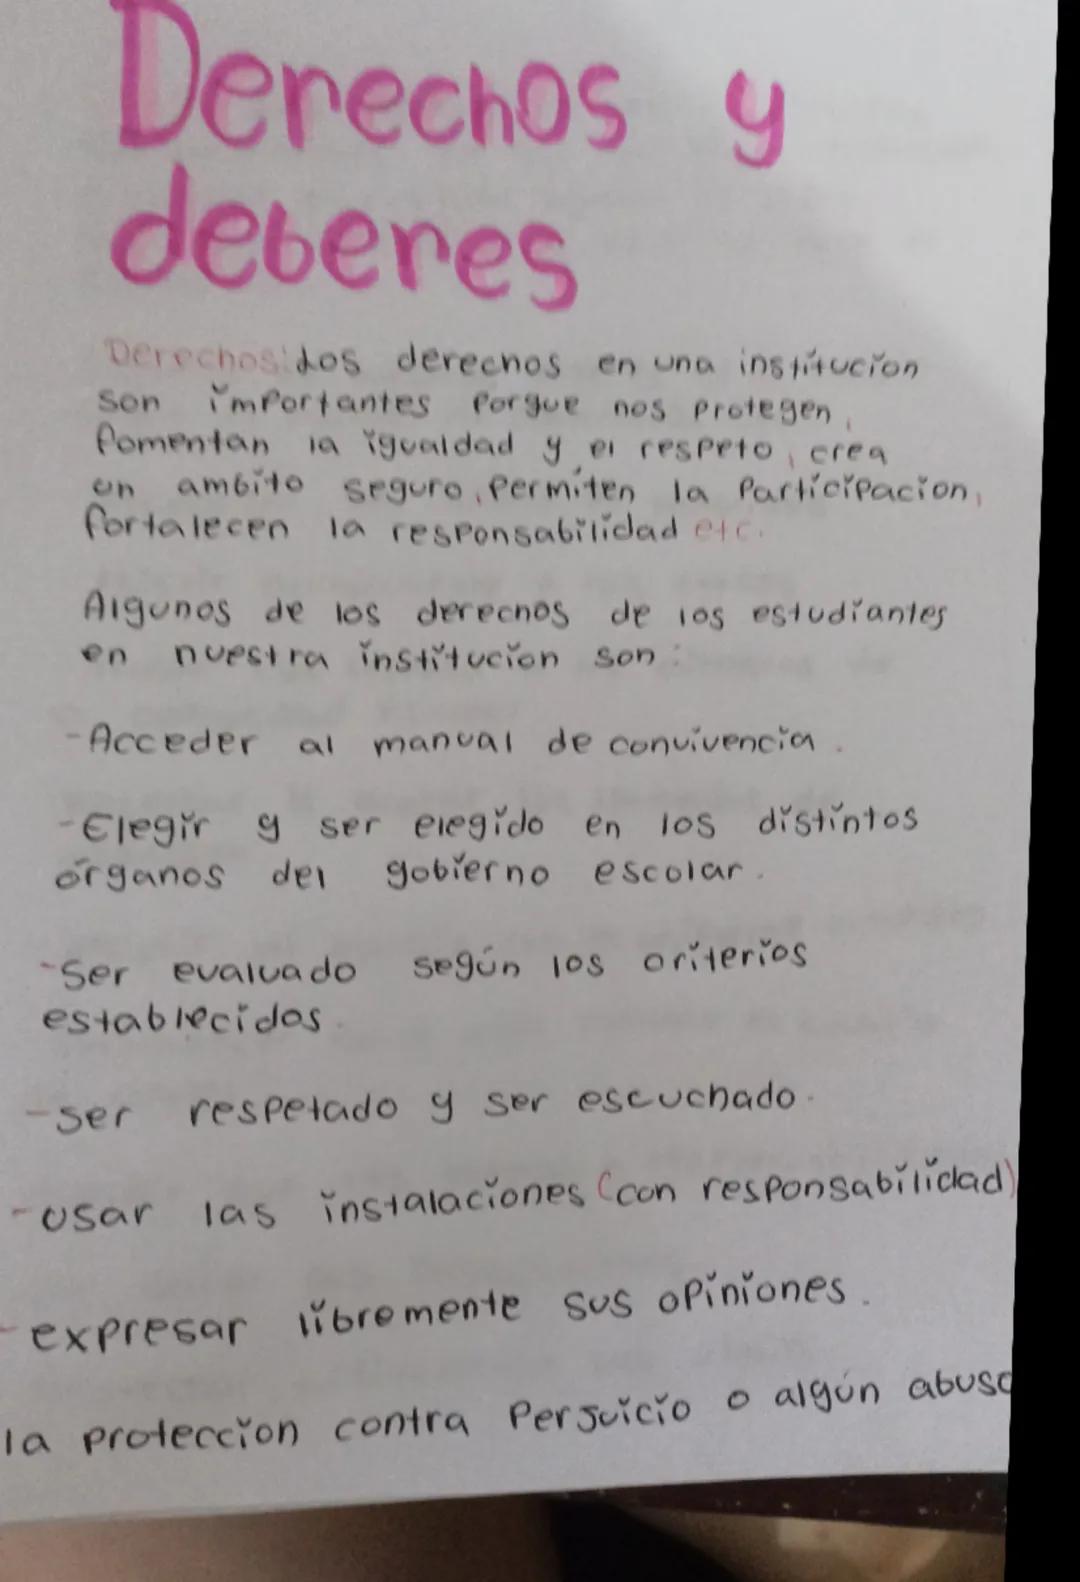 Derechos y
deberes
Derechos: Los derechos en una institucion
son importantes porque nos protegen,
fomentan la igualdad y el respeto, crea
un ambito seguro, Permiten la Participacion,
fortalecen la responsabilidad etc.
Algunos de los derechos de los estudiantes
en nuestra institucion son:
-Acceder al manual de convivencia.
-Elegir y ser elegido en los distintos
órganos del gobierno escolar.
-Ser evaluado según los criterios
establecidos.
-ser respetado y ser escuchado.
-usar las instalaciones (con responsabilidad)
-expresar libremente sus opiniones.
la proteccion contra Perjuicio o algún abuso